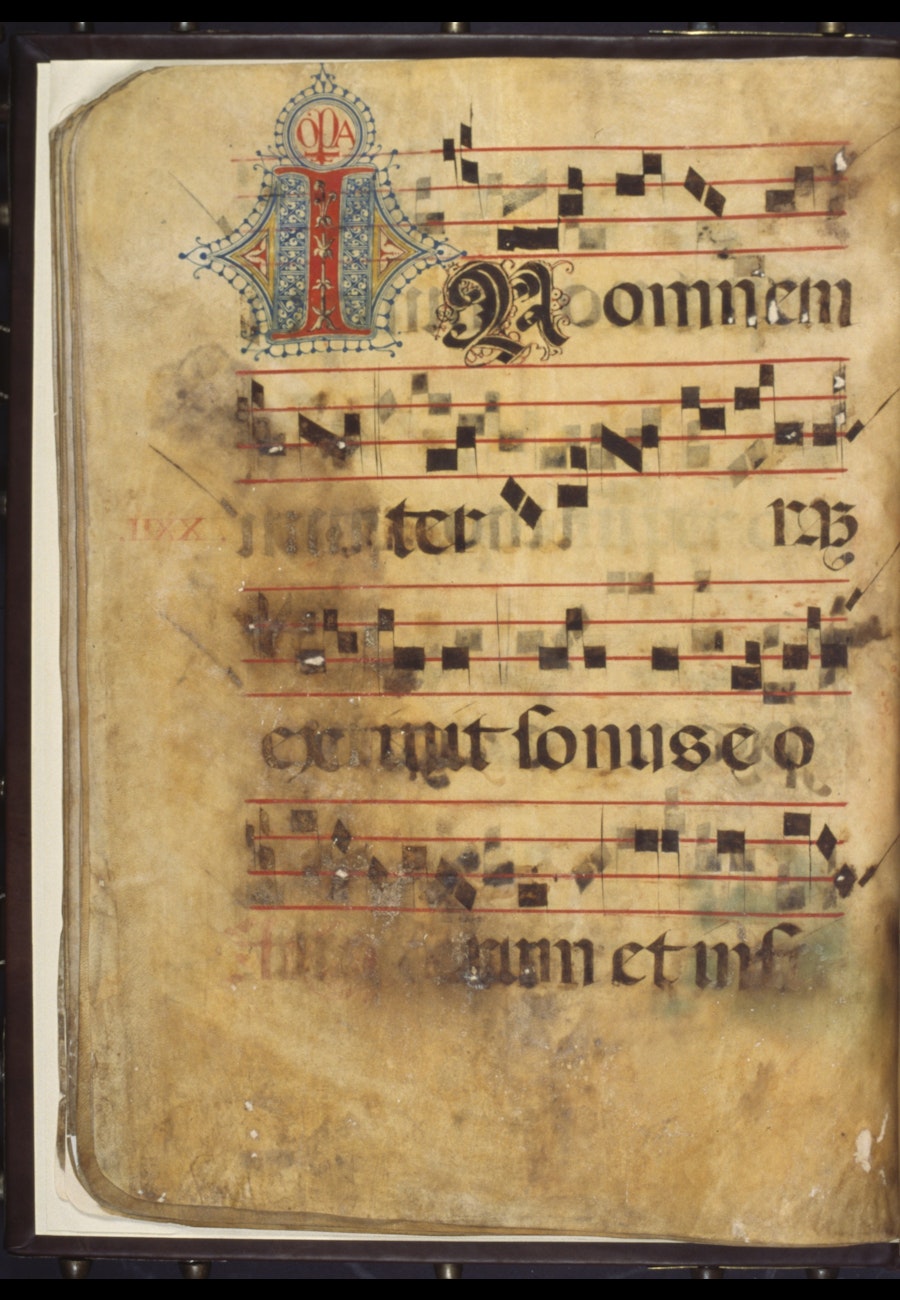 IN omnem
ter ram
exiuit sonus e o
rum et in f